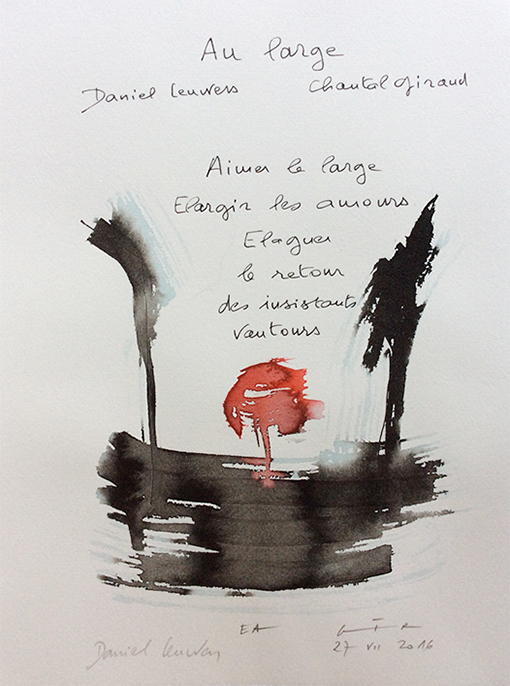 Au large
Daniel Leuwers Chantal Giraud
Aimer le large
Elargir les amours
Elaguer
le retour
des insistants
vautours
EA
Daniel Leuwers 27 VII 2016